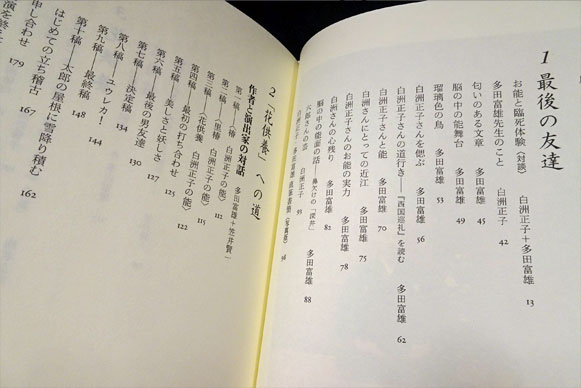 1 最後の友達
お能と臨死体験〈対談〉 白洲正子+多田富雄 13
多田富雄先生のこと 白洲正子 42
匂いのある文章 多田富雄 45
脳の中の能舞台 多田富雄 49
瑠璃色の鳥 多田富雄 53
白洲正子さんを偲ぶ 多田富雄 56
白洲正子さんの道行き――『西国巡礼』を読む 多田富雄 62
白洲正子さんと能 多田富雄 70
白洲さんにとっての近江 多田富雄 75
白洲正子さんのお能の実力 多田富雄 78
白洲さんの心残り 多田富雄 82
脳の中の能面の話――鼻欠けの「深井」 多田富雄 88
六郎さんの話 白洲正子 93
2 「花供養」への道
作者と演出家の対話 多田富雄+笠井賢一
第一稿――〈椿 白洲正子の能〉
第二稿――〈里椿 白洲正子の能〉 112
第三稿――〈花供養 白洲正子の能〉 115
第四稿――最初の打ち合わせ 122
第五稿――美しさと妖しさ 125
第六稿――最後の男友達 127
第七稿――決定稿 130
第八稿――ユウレカ! 134
第九稿――最終稿 144
第十稿――太郎の屋根に雪降り積む 148
はじめての立ち稽古 162
申し合わせ 167
演を終えて 179